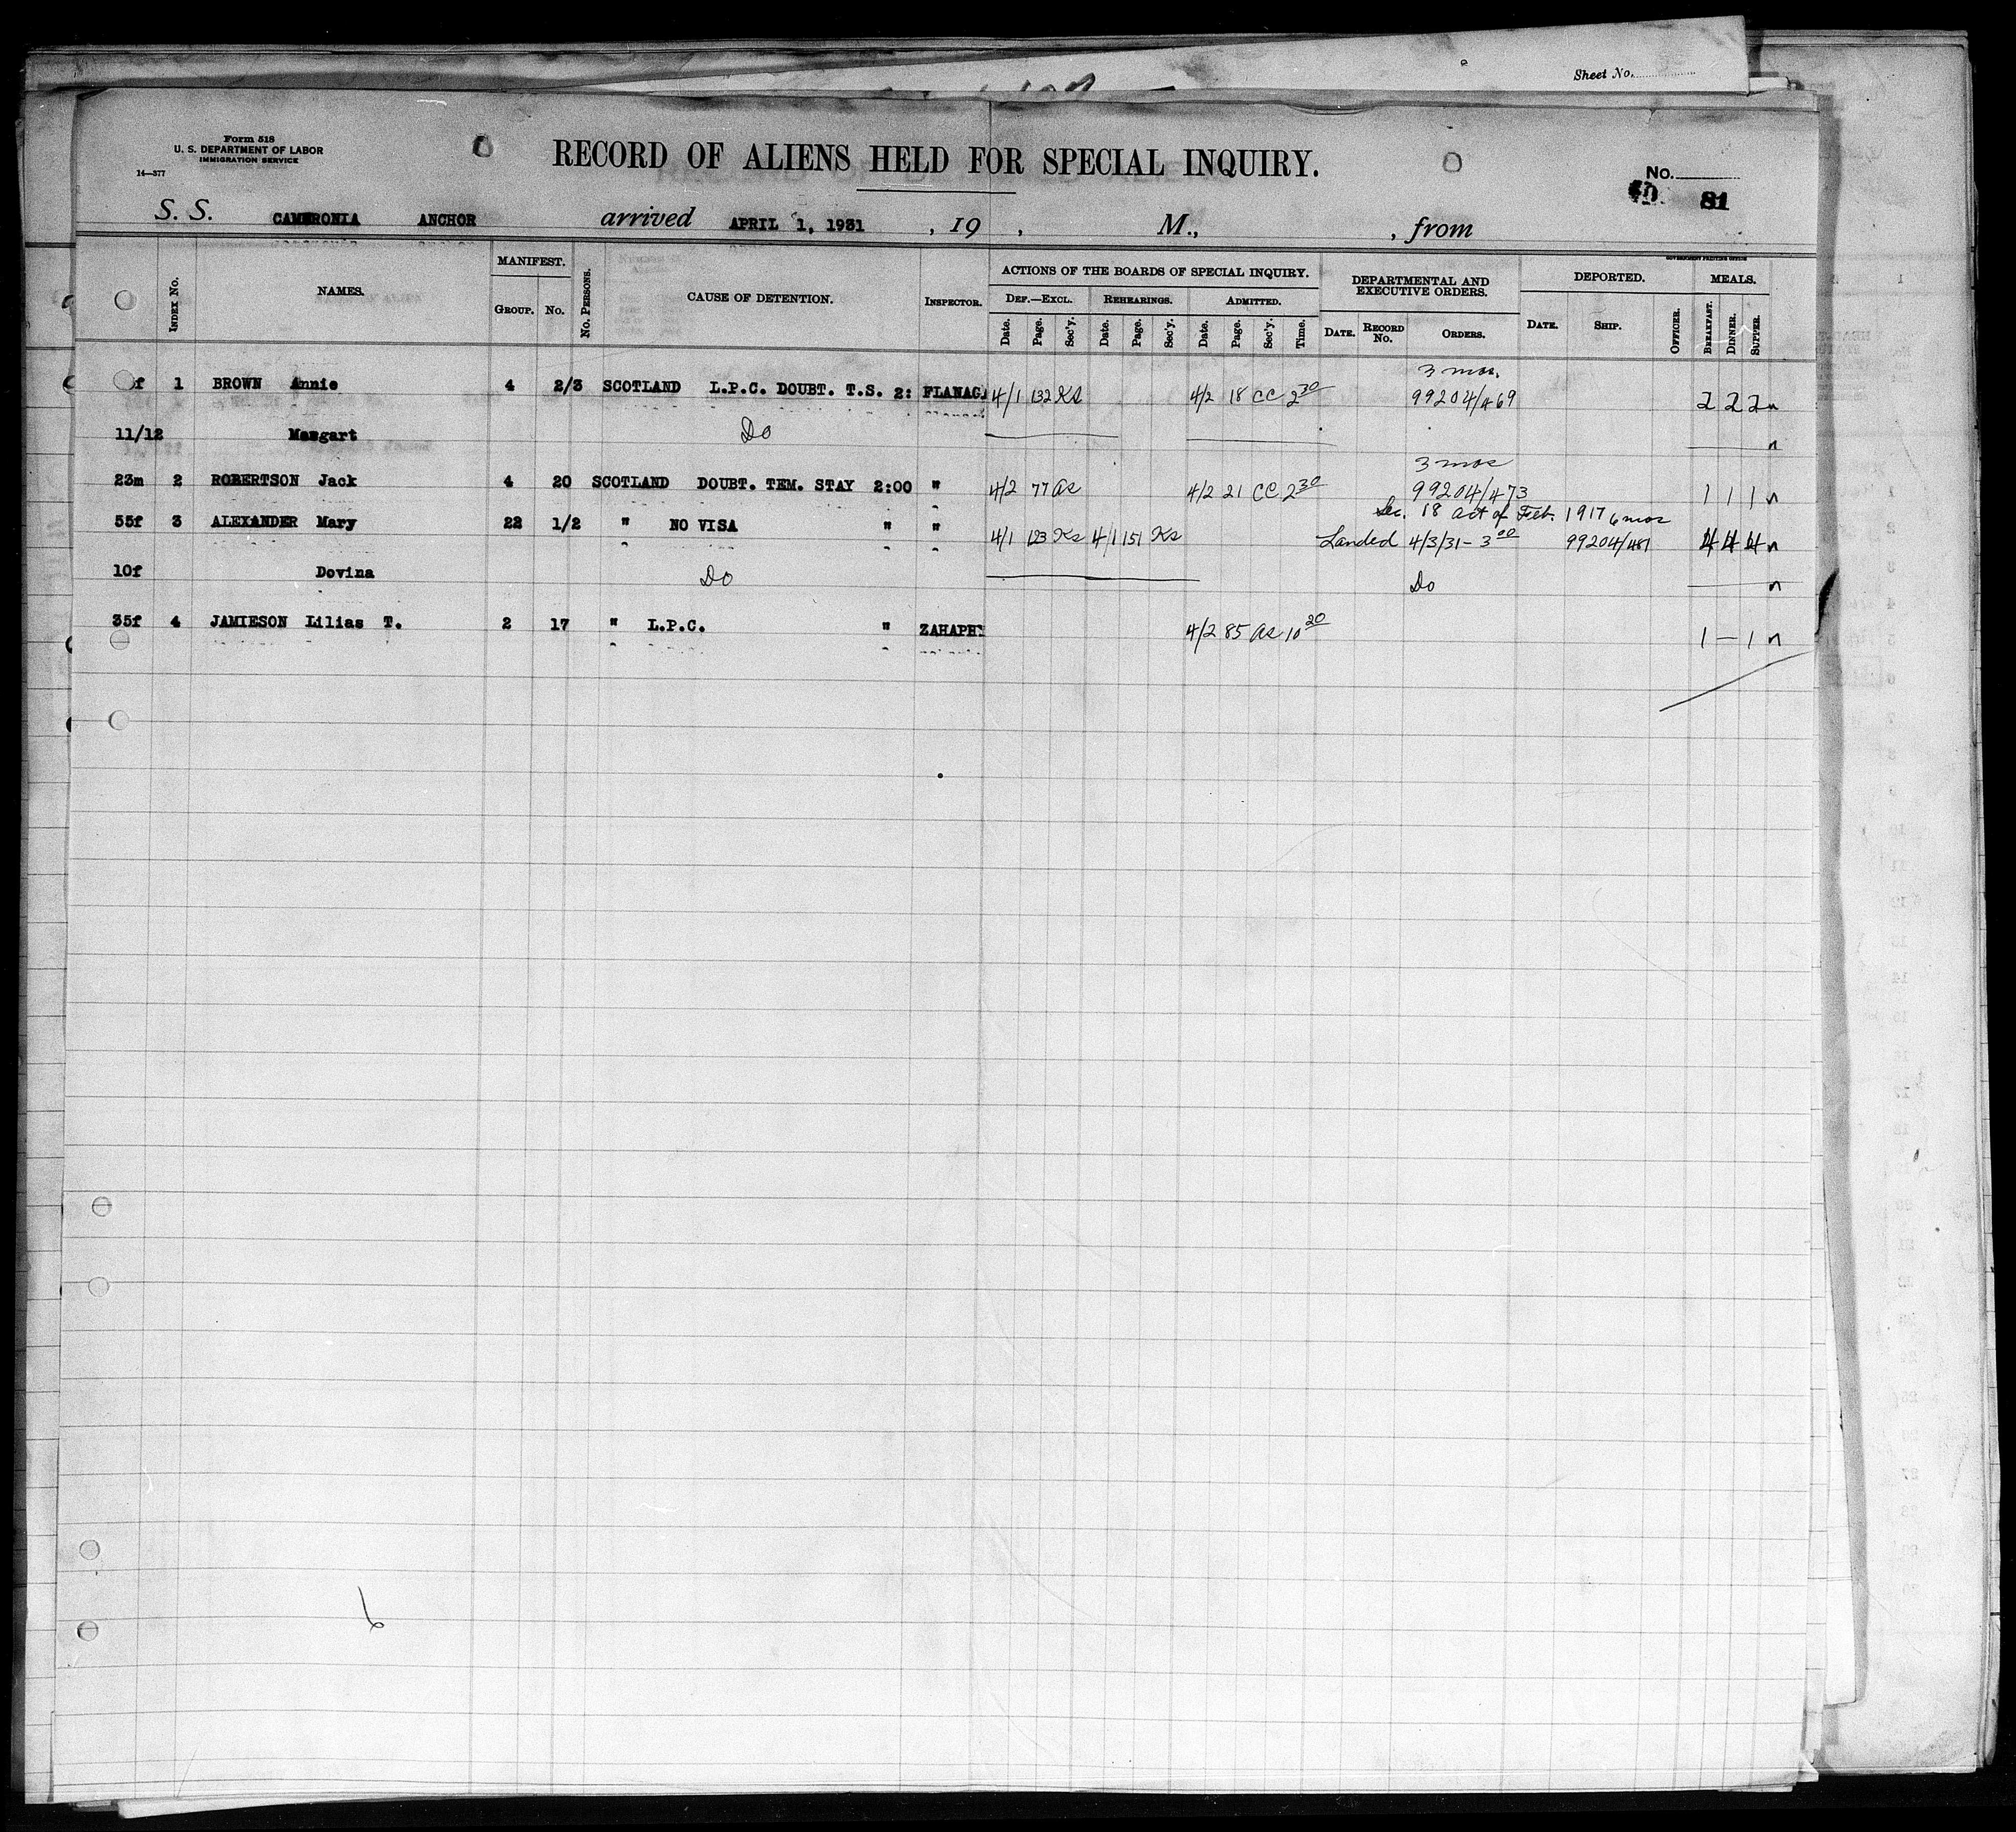 Sheet No.
Form 518
U. S. DEPARTMENT OF LABOR
IMMIGRATION SERVICE
14—377
RECORD OF ALIENS HELD FOR SPECIAL INQUIRY.
No.
81
S. S. CAMERONIA ANCHOR arrived APRIL 1, 1931 , 19 , M., , from
GOVERNMENT PRINTING OFFICE
INDEX No. NAMES. MANIFEST. GROUP. No. No. PERSONS. CAUSE OF DETENTION. INSPECTOR. ACTIONS OF THE BOARDS OF SPECIAL INQUIRY. DEF.—EXCL. Date. Page. Sec'y. REHEARINGS. Date. Page. Sec'y. ADMITTED. Date. Page. Sec'y. Time. DEPARTMENTAL AND EXECUTIVE ORDERS. DATE. RECORD No. ORDERS. DEPORTED. DATE. SHIP. OFFICER. MEALS. BREAKFAST. DINNER. SUPPER.
3 mos.
f 1 BROWN Annie 4 2/3 SCOTLAND L.P.C. DOUBT. T.S. 2: FLANAGA 4/1 132 KS 4/2 18 CC 2 30 99204/469 2 2 2 n
11/12 Margart Do n
3 mos
23m 2 ROBERTSON Jack 4 20 SCOTLAND DOUBT. TEM. STAY 2:00 " 4/2 77 as 4/2 21 CC 2 30 99204/473 1 1 1 n
Sec. 18 act of Feb. 1917 6 mos
55f 3 ALEXANDER Mary 22 1/2 " NO VISA " " 4/1 123 Ks 4/1 151 Ks Landed 4/3/31 - 3 00 99204/481 4 4 4 n
10f Dovina Do Do n
35f 4 JAMIESON Lilias T. 2 17 " L.P.C. " ZAHAPHY 4/2 85 as 10 20 1 — 1 n
6